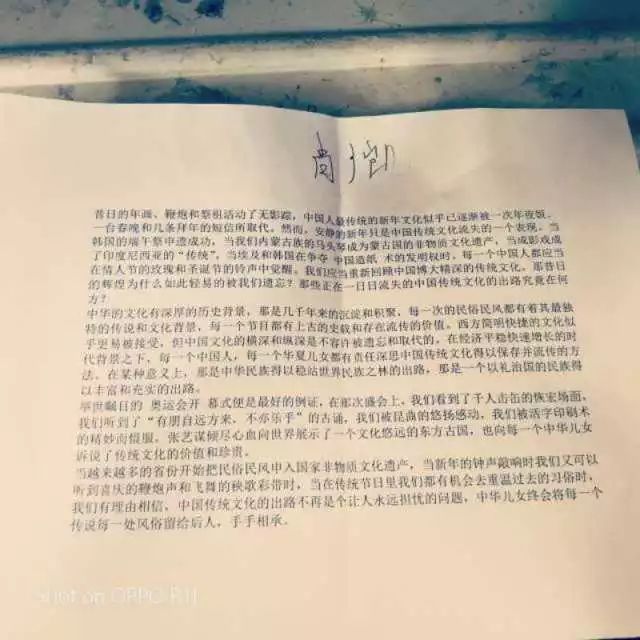 昔日的年画、鞭炮和祭祖活动了无影踪，中国人最传统的新年文化似乎已逐渐被一次年夜饭、
一台春晚和几条拜年的短信所取代。然而，安静的新年只是中国传统文化流失的一个表现。当
韩国的端午祭申遗成功，当我们内蒙古族的马头琴成为蒙古国的非物质文化遗产，当皮影戏成
了印度尼西亚的“传统”，当埃及和韩国在争夺 中国造纸 术的发明权时，每一个中国人都应当
在情人节的玫瑰和圣诞节的铃声中觉醒。我们应当重新回顾中国博大精深的传统文化，那昔日
的辉煌为什么如此轻易的被我们遗忘？那些正在一日日流失的中国传统文化的出路究竟在何
方？
中华的文化有深厚的历史背景，那是几千年来的沉淀和积聚，每一次的民俗民风都有着其最独
特的传说和文化背景，每一个节目都有上古的史载和存在流传的价值。西方简明快捷的文化似
乎更易被接受，但中国文化的横深和纵深是不容许被遗忘和取代的，在经济平稳快速增长的时
代背景之下，每一个中国人，每一个华夏儿女都有责任深思中国传统文化得以保存并流传的方
法。在某种意义上，那是中华民族得以稳站世界民族之林的出路，那是一个以礼治国的民族得
以丰富和充实的出路。
举世瞩目的 奥运会开 幕式便是最好的例证，在那次盛会上，我们看到了千人击缶的恢宏场面，
我们听到了“有朋自远方来，不亦乐乎”的古诵，我们被昆曲的悠扬感动，我们被活字印刷术
的精妙而慑服。张艺谋倾尽心血向世界展示了一个文化悠远的东方古国，也向每一个中华儿女
诉说了传统文化的价值和珍贵。
当越来越多的省份开始把民俗民风申入国家非物质文化遗产，当新年的钟声敲响时我们又可以
听到喜庆的鞭炮声和飞舞的秧歌彩带时，当在传统节日里我们都有机会去重温过去的习俗时，
我们有理由相信，中国传统文化的出路不再是个让人永远担忧的问题，中华儿女终会将每一个
传说每一处风俗留给后人，手手相承。
Shot on OPPO R11